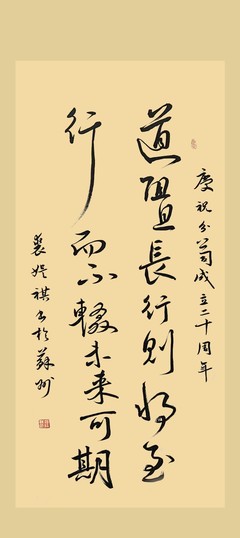 慶祝公司成立二十周年
道阻且長行則將至
行而不輟未來可期
祺书於蘇州